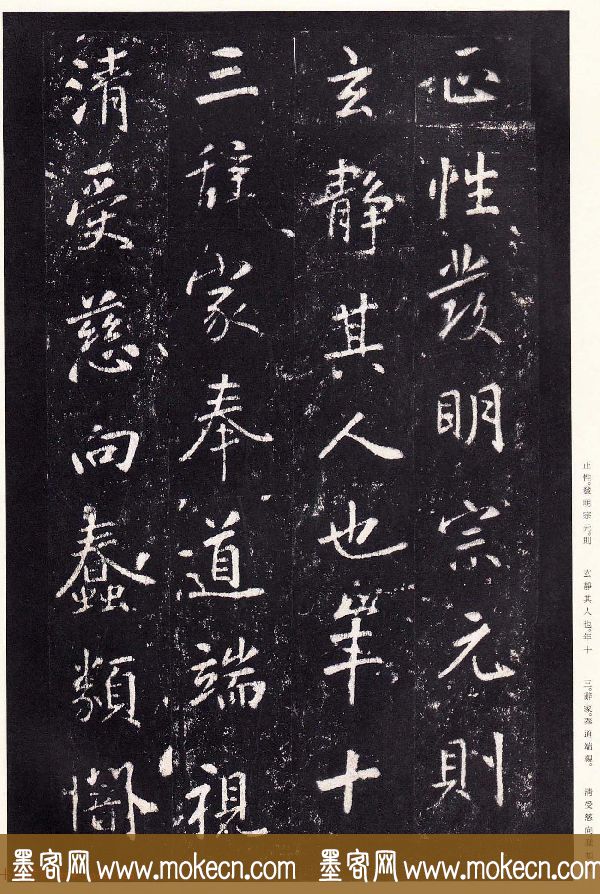 正性發明宗元則
玄靜其人也年十
三辭家奉道端視
清受慈向蠢類
正性。發明宗元。則
玄靜其人也。年十
三。辭家。奉道端視。
清受慈向
墨客网 www.mokecn.com 墨客网 www.mokecn.com